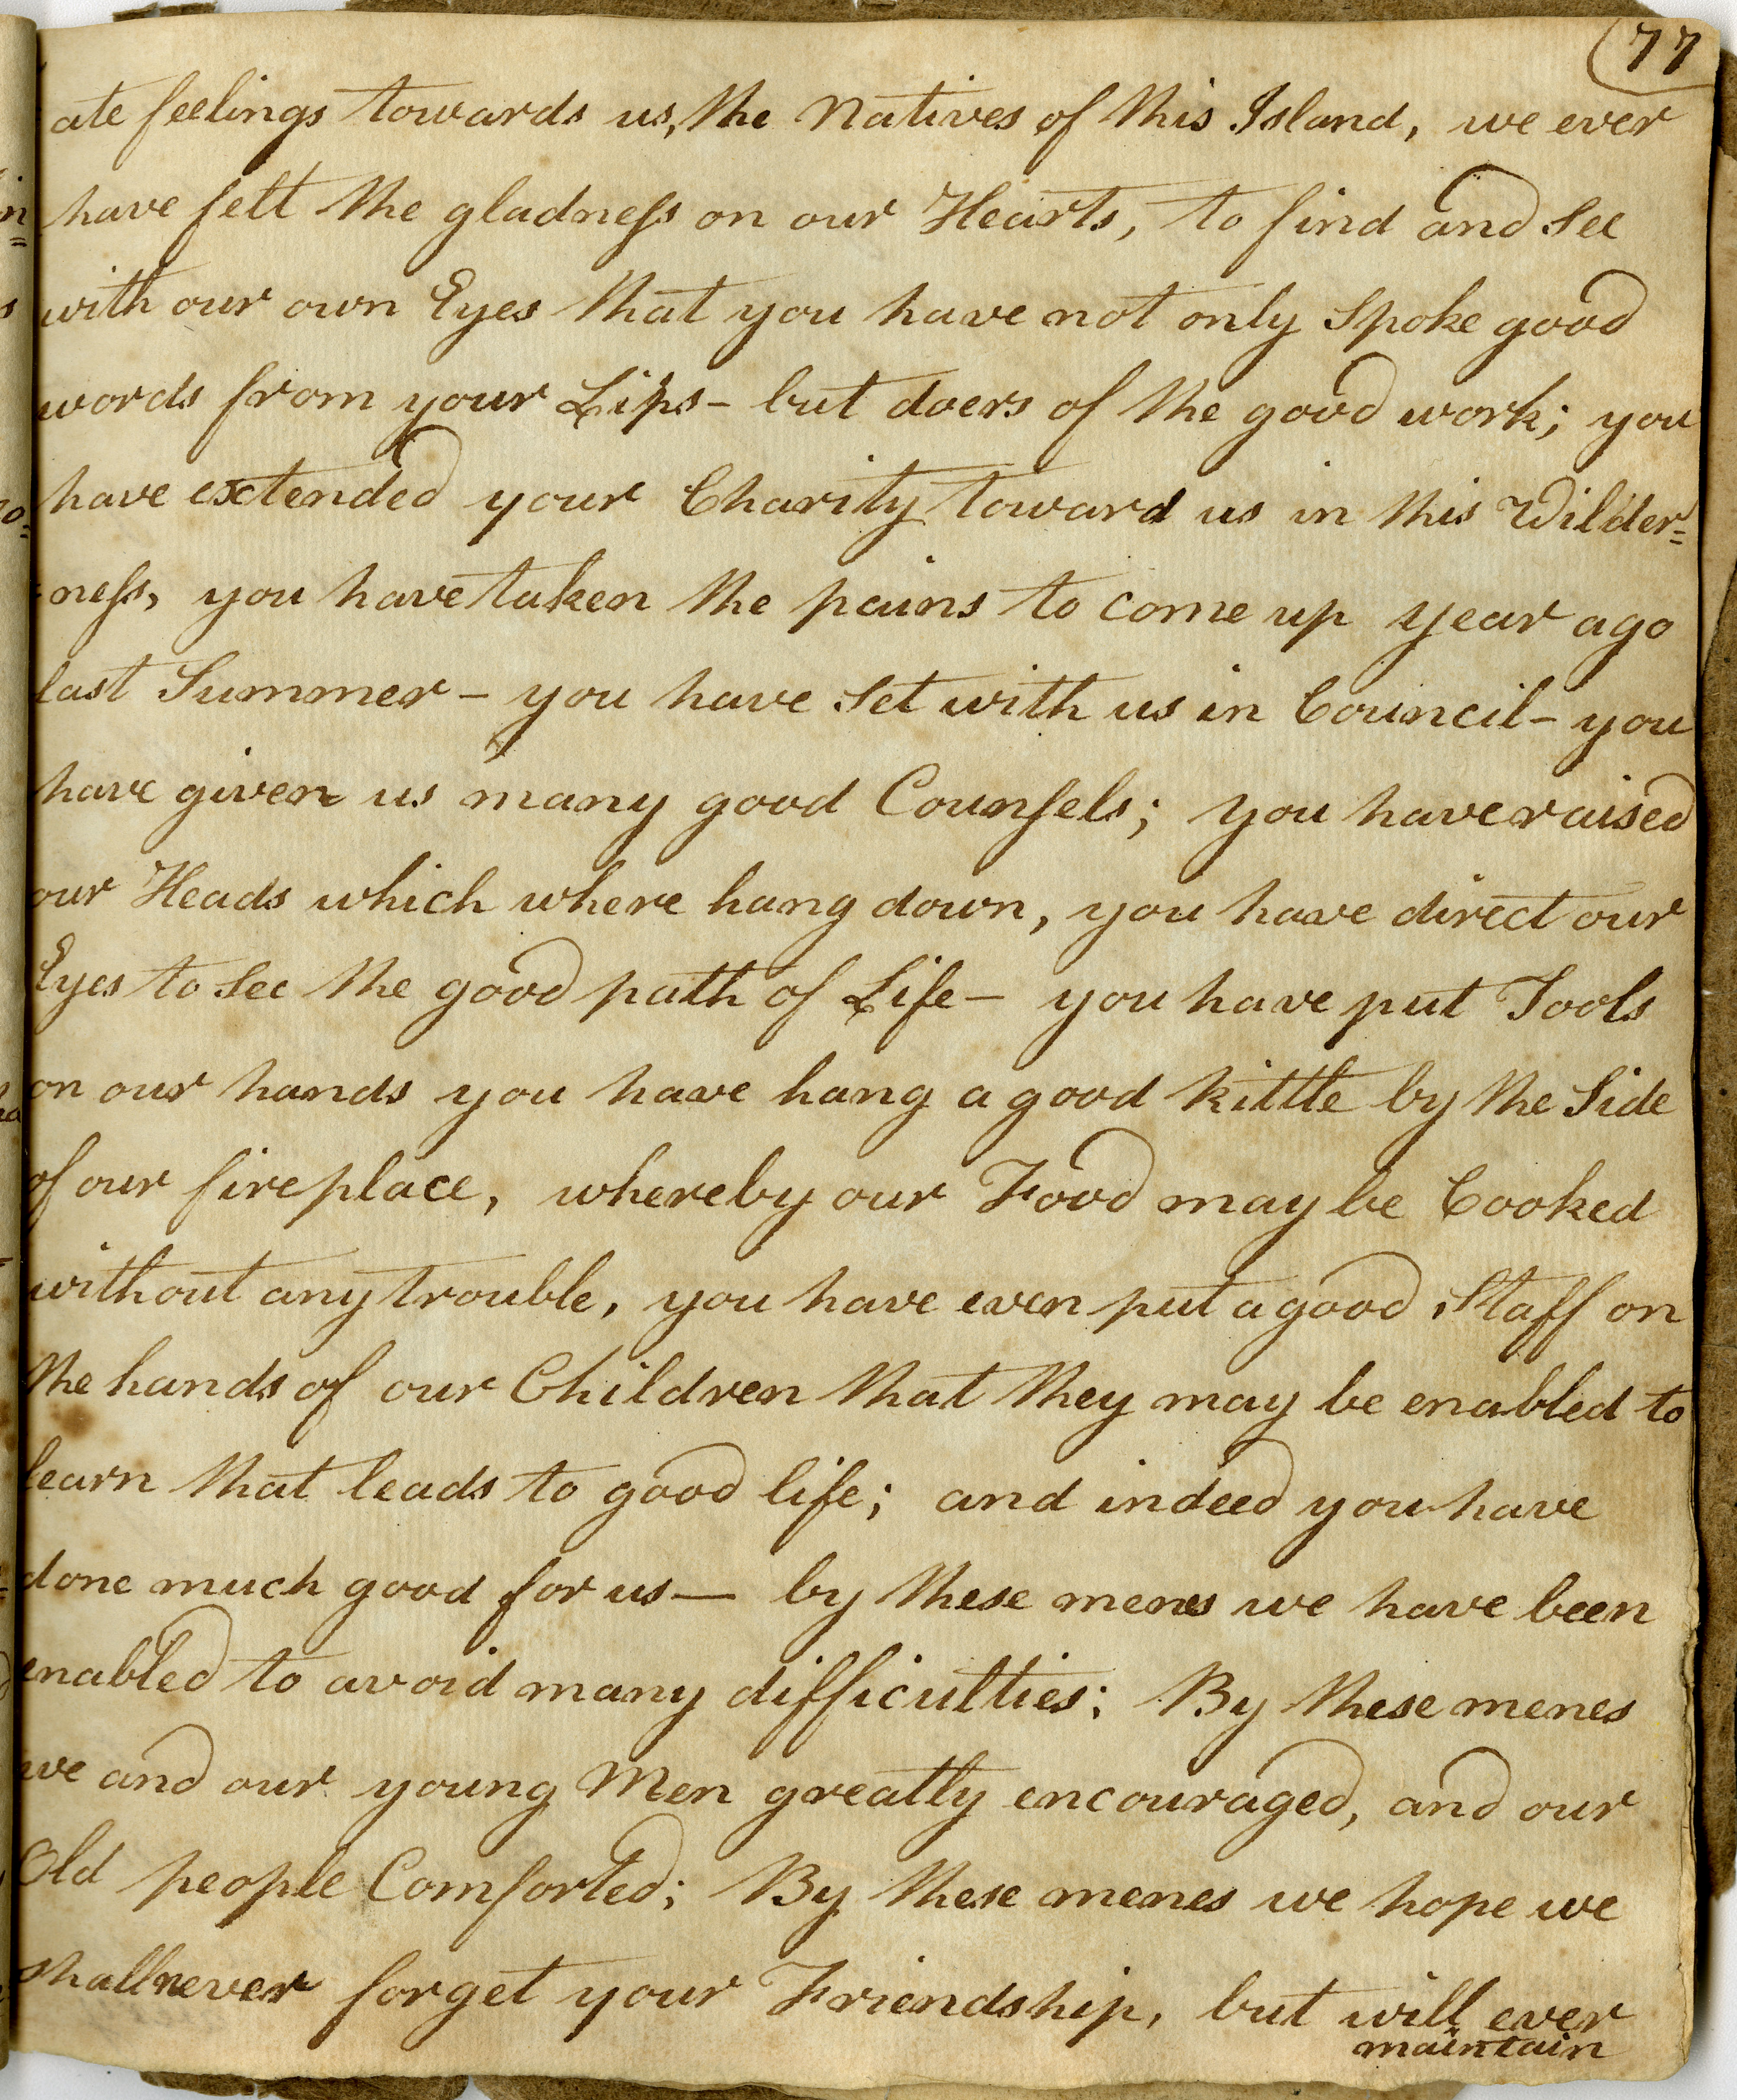 77
ate feelings towards us, the Natives of this Island, we ever
have felt the gladness on our Hearts, to find and See
with our own Eyes that you have not only Spoke good
words from your Lips - but doers of the good work; you
have extended your Charity toward us in this Wilder=
=ness, you have taken the pains to come up year ago
last Summer - you have Set with us in Council - you
have given us many good Counsels; you have raised
our Heads which where hang down, you have direct our
Eyes to See the good path of Life - you have put Tools
on our hands you have hang a good kittle by the Side
of our fireplace, whereby our Food may be Cooked
without any trouble, you have even put a good Staff on
the hands of our Children that they may be enabled to
learn that leads to good life; and indeed you have
done much good for us — by these menes we have been
enabled to avoid many difficulties; By these menes
we and our young Men greatly encouraged, and our
Old people Comforted; By these menes we hope we
shall never forget your Friendship, but will ever
maintain